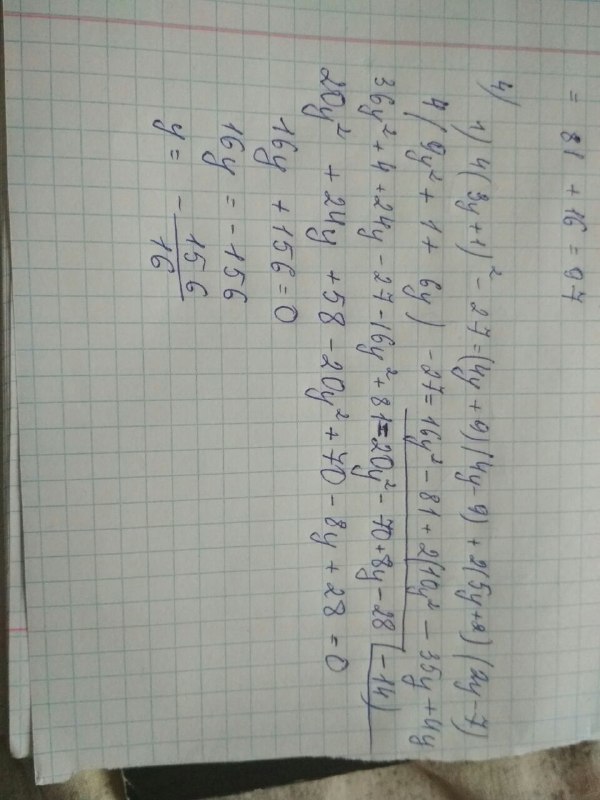 = 81 + 16 = 97
4) 1) 4(3y+1)² - 27 = (4y+9)(4y-9) + 2(5y+2)(2y-7)
4(9y² + 1 + 6y) - 27 = 16y² - 81 + 2(10y² - 35y + 4y
- 14)
36y² + 4 + 24y - 27 - 16y² + 81 = 20y² - 70 + 8y - 28
20y² + 24y + 58 - 20y² + 70 - 8y + 28 = 0
16y + 156 = 0
16y = -156
y = - 156/16